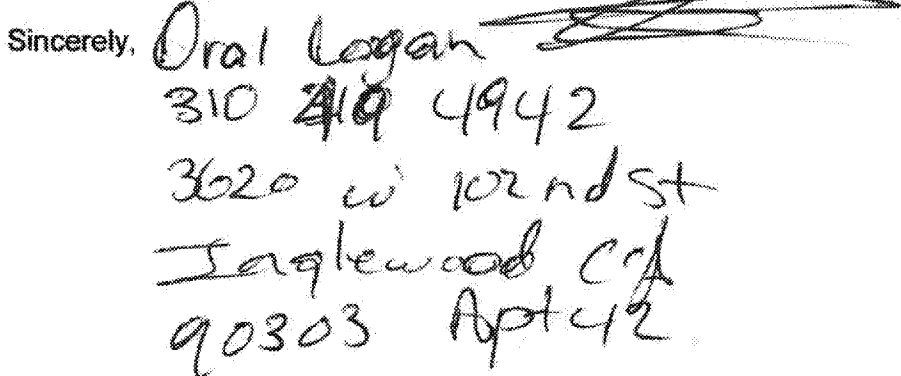 Sincerely, Oral Logan
310 4942
3620 w 102nd St
Inglewood Ca
90303 Apt 42